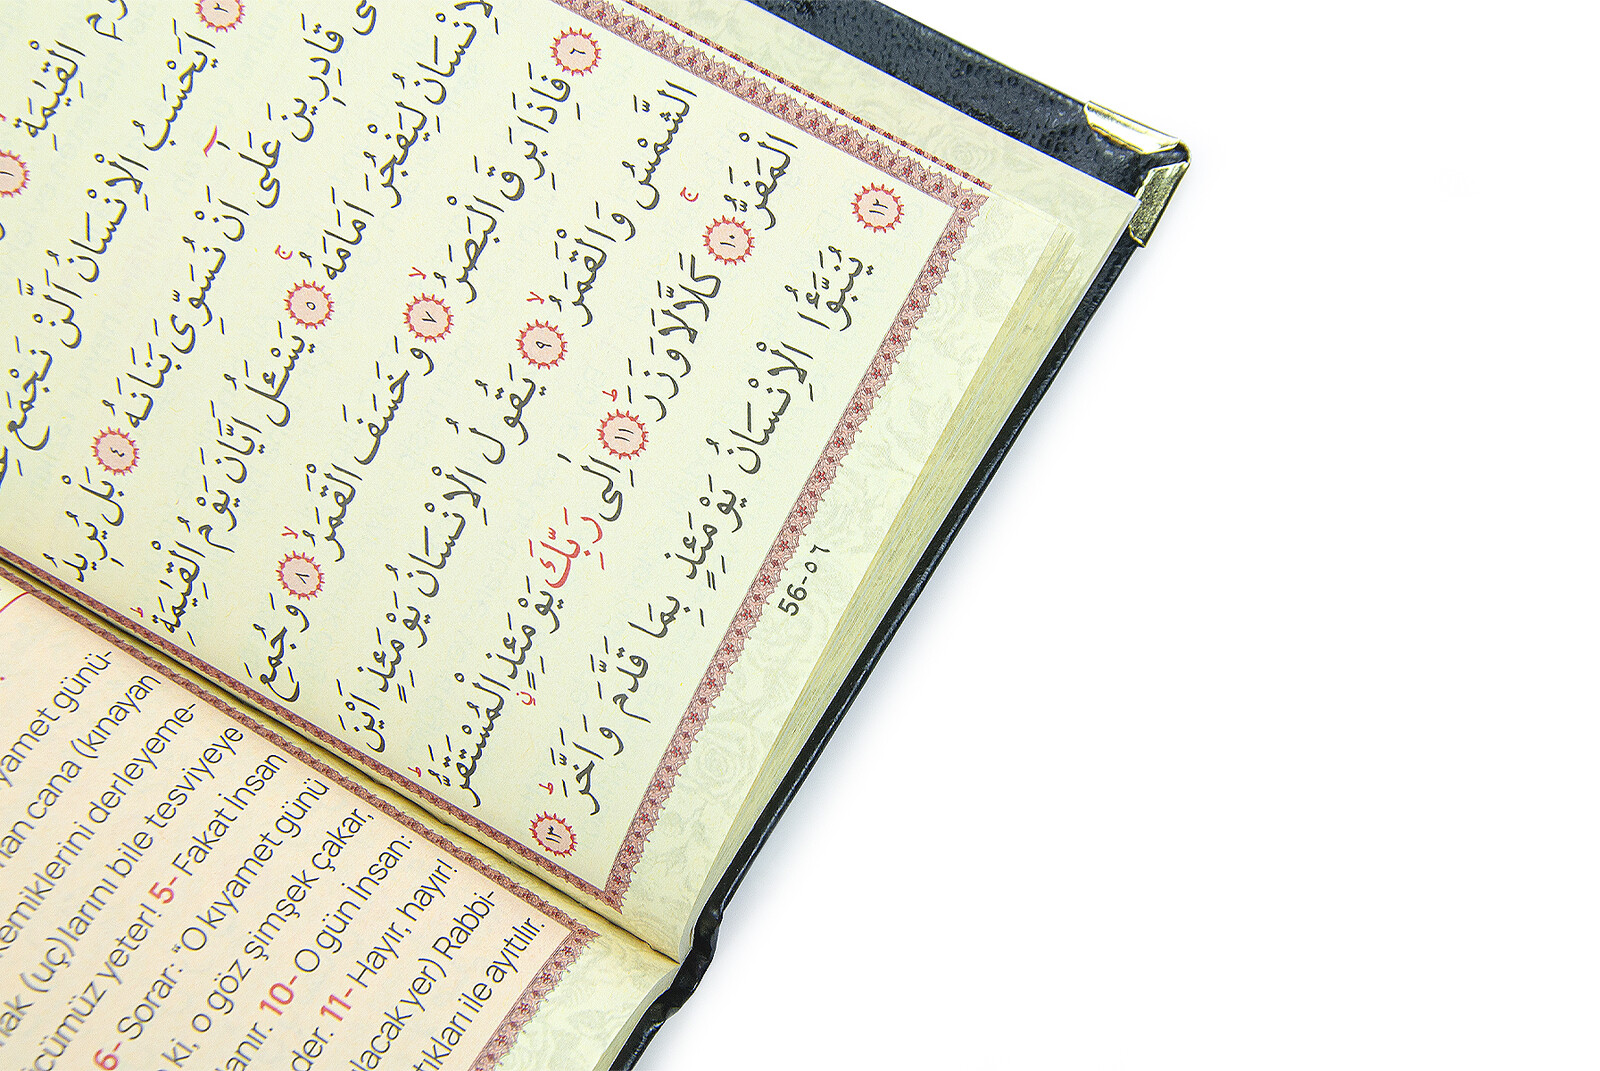 الْقِيٰمَةِ ١
٢ اَيَحْسَبُ الْاِنْسَانُ اَلَّنْ نَجْمَعَ
قَادِرِينَ عَلٰٓى اَنْ نُسَوِّىَ بَنَانَهُ ٤ بَلْ يُرِيدُ
الْاِنْسَانُ لِيَفْجُرَ اَمَامَهُ ۚ ٥ يَسْـَٔلُ اَيَّانَ يَوْمُ الْقِيٰمَةِ ۜ
٦ فَاِذَا بَرِقَ الْبَصَرُ ۙ ٧ وَخَسَفَ الْقَمَرُ ۙ ٨ وَجُمِعَ
الشَّمْسُ وَالْقَمَرُ ۙ ٩ يَقُولُ الْاِنْسَانُ يَوْمَئِذٍ اَيْنَ
الْمَفَرُّ ۚ ١٠ كَلَّا لَا وَزَرَ ۜ ١١ اِلٰى رَبِّكَ يَوْمَئِذٍ الْمُسْتَقَرُّ ۜ
١٢ يُنَبَّؤُا الْاِنْسَانُ يَوْمَئِذٍ بِمَا قَدَّمَ وَاَخَّرَ ۜ ١٣
56-٥٦
yamet günü-
cana (kınayan
kemiklerini derleyeme-
(uç)larını bile tesviyeye
yeter! 5- Fakat insan
6- Sorar: "O kıyamet günü
ki, o göz şimşek çakar,
10- O gün İnsan:
der. 11- Hayır, hayır!
yer) Rabbi-
ile ayıtılır.